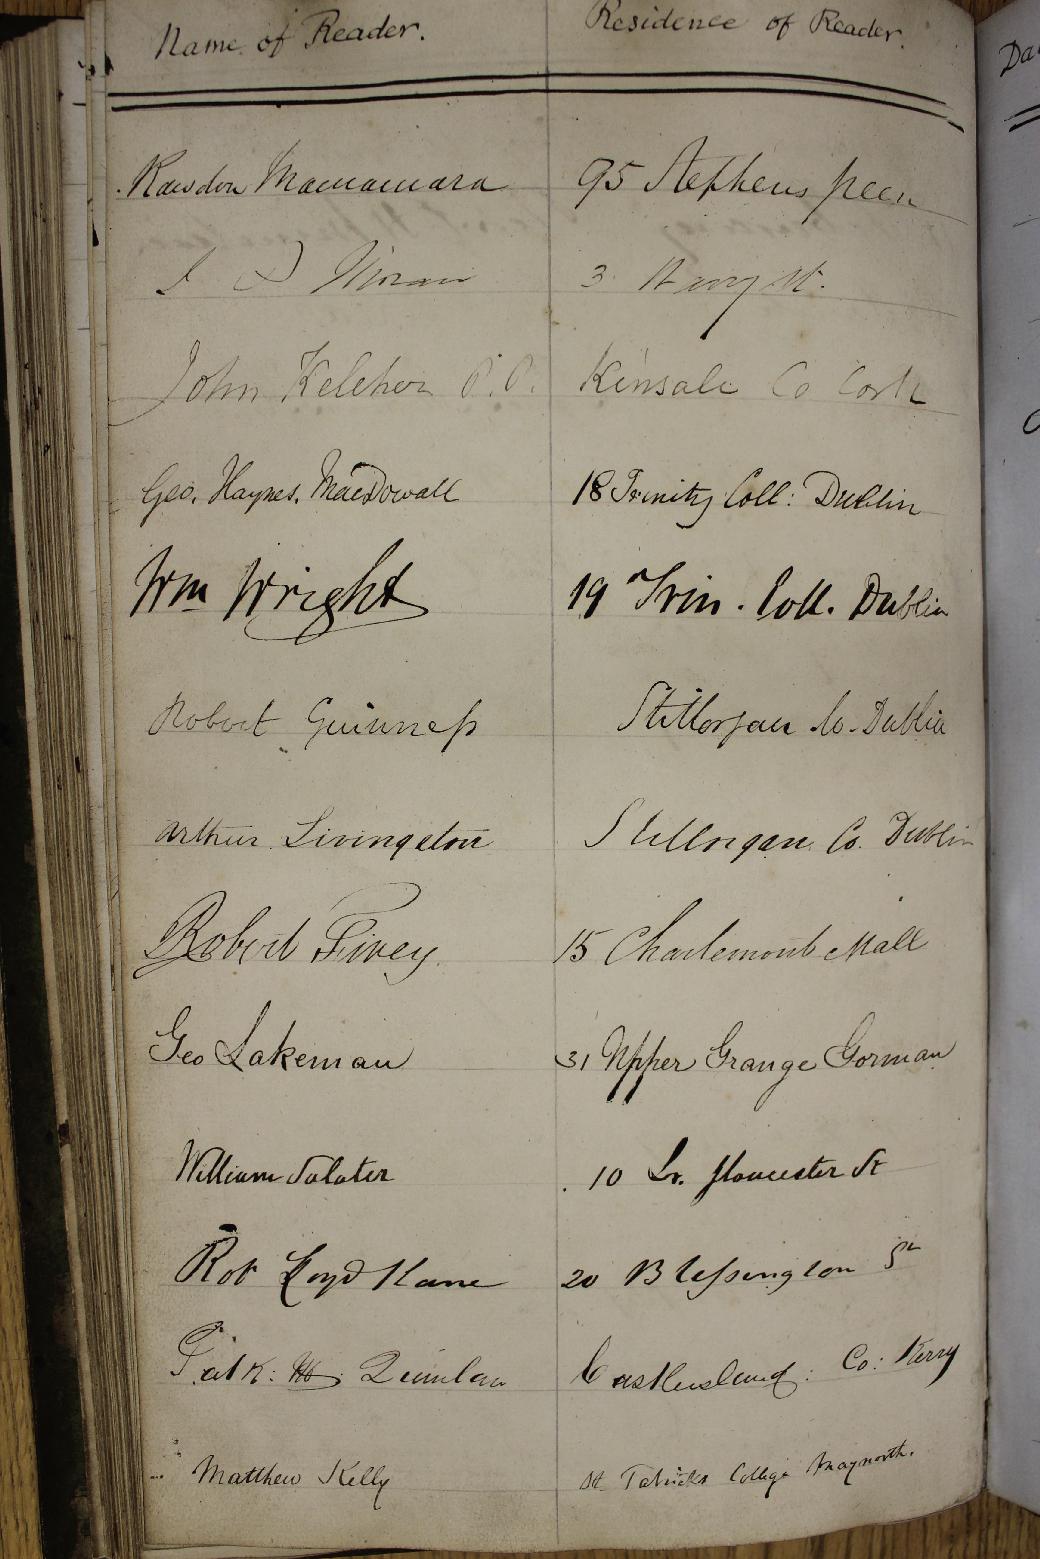 Name of Reader. Residence of Reader.
Rawdon Macnamara 95 Stephens Green
Moran 3 Henry St.
John Keleher P.P. Kinsale Co Cork
Geo. Haynes. MacDowall 18 Trinity Coll: Dublin
Wm Wright 19 Trin. Coll. Dublin
Robert Guinness Stillorgan Co. Dublin
Arthur Livingston Stillorgan Co. Dublin
Robert Fivey 15 Charlemont Mall
Geo Lakeman 31 Upper Grange Gorman
William Salater 10 Lr. Gloucester St
Rob Loyd Kane 20 Blessington St
Patk: Quinlan Castleisland: Co: Kerry
Matthew Kelly St Patricks College Maynooth.